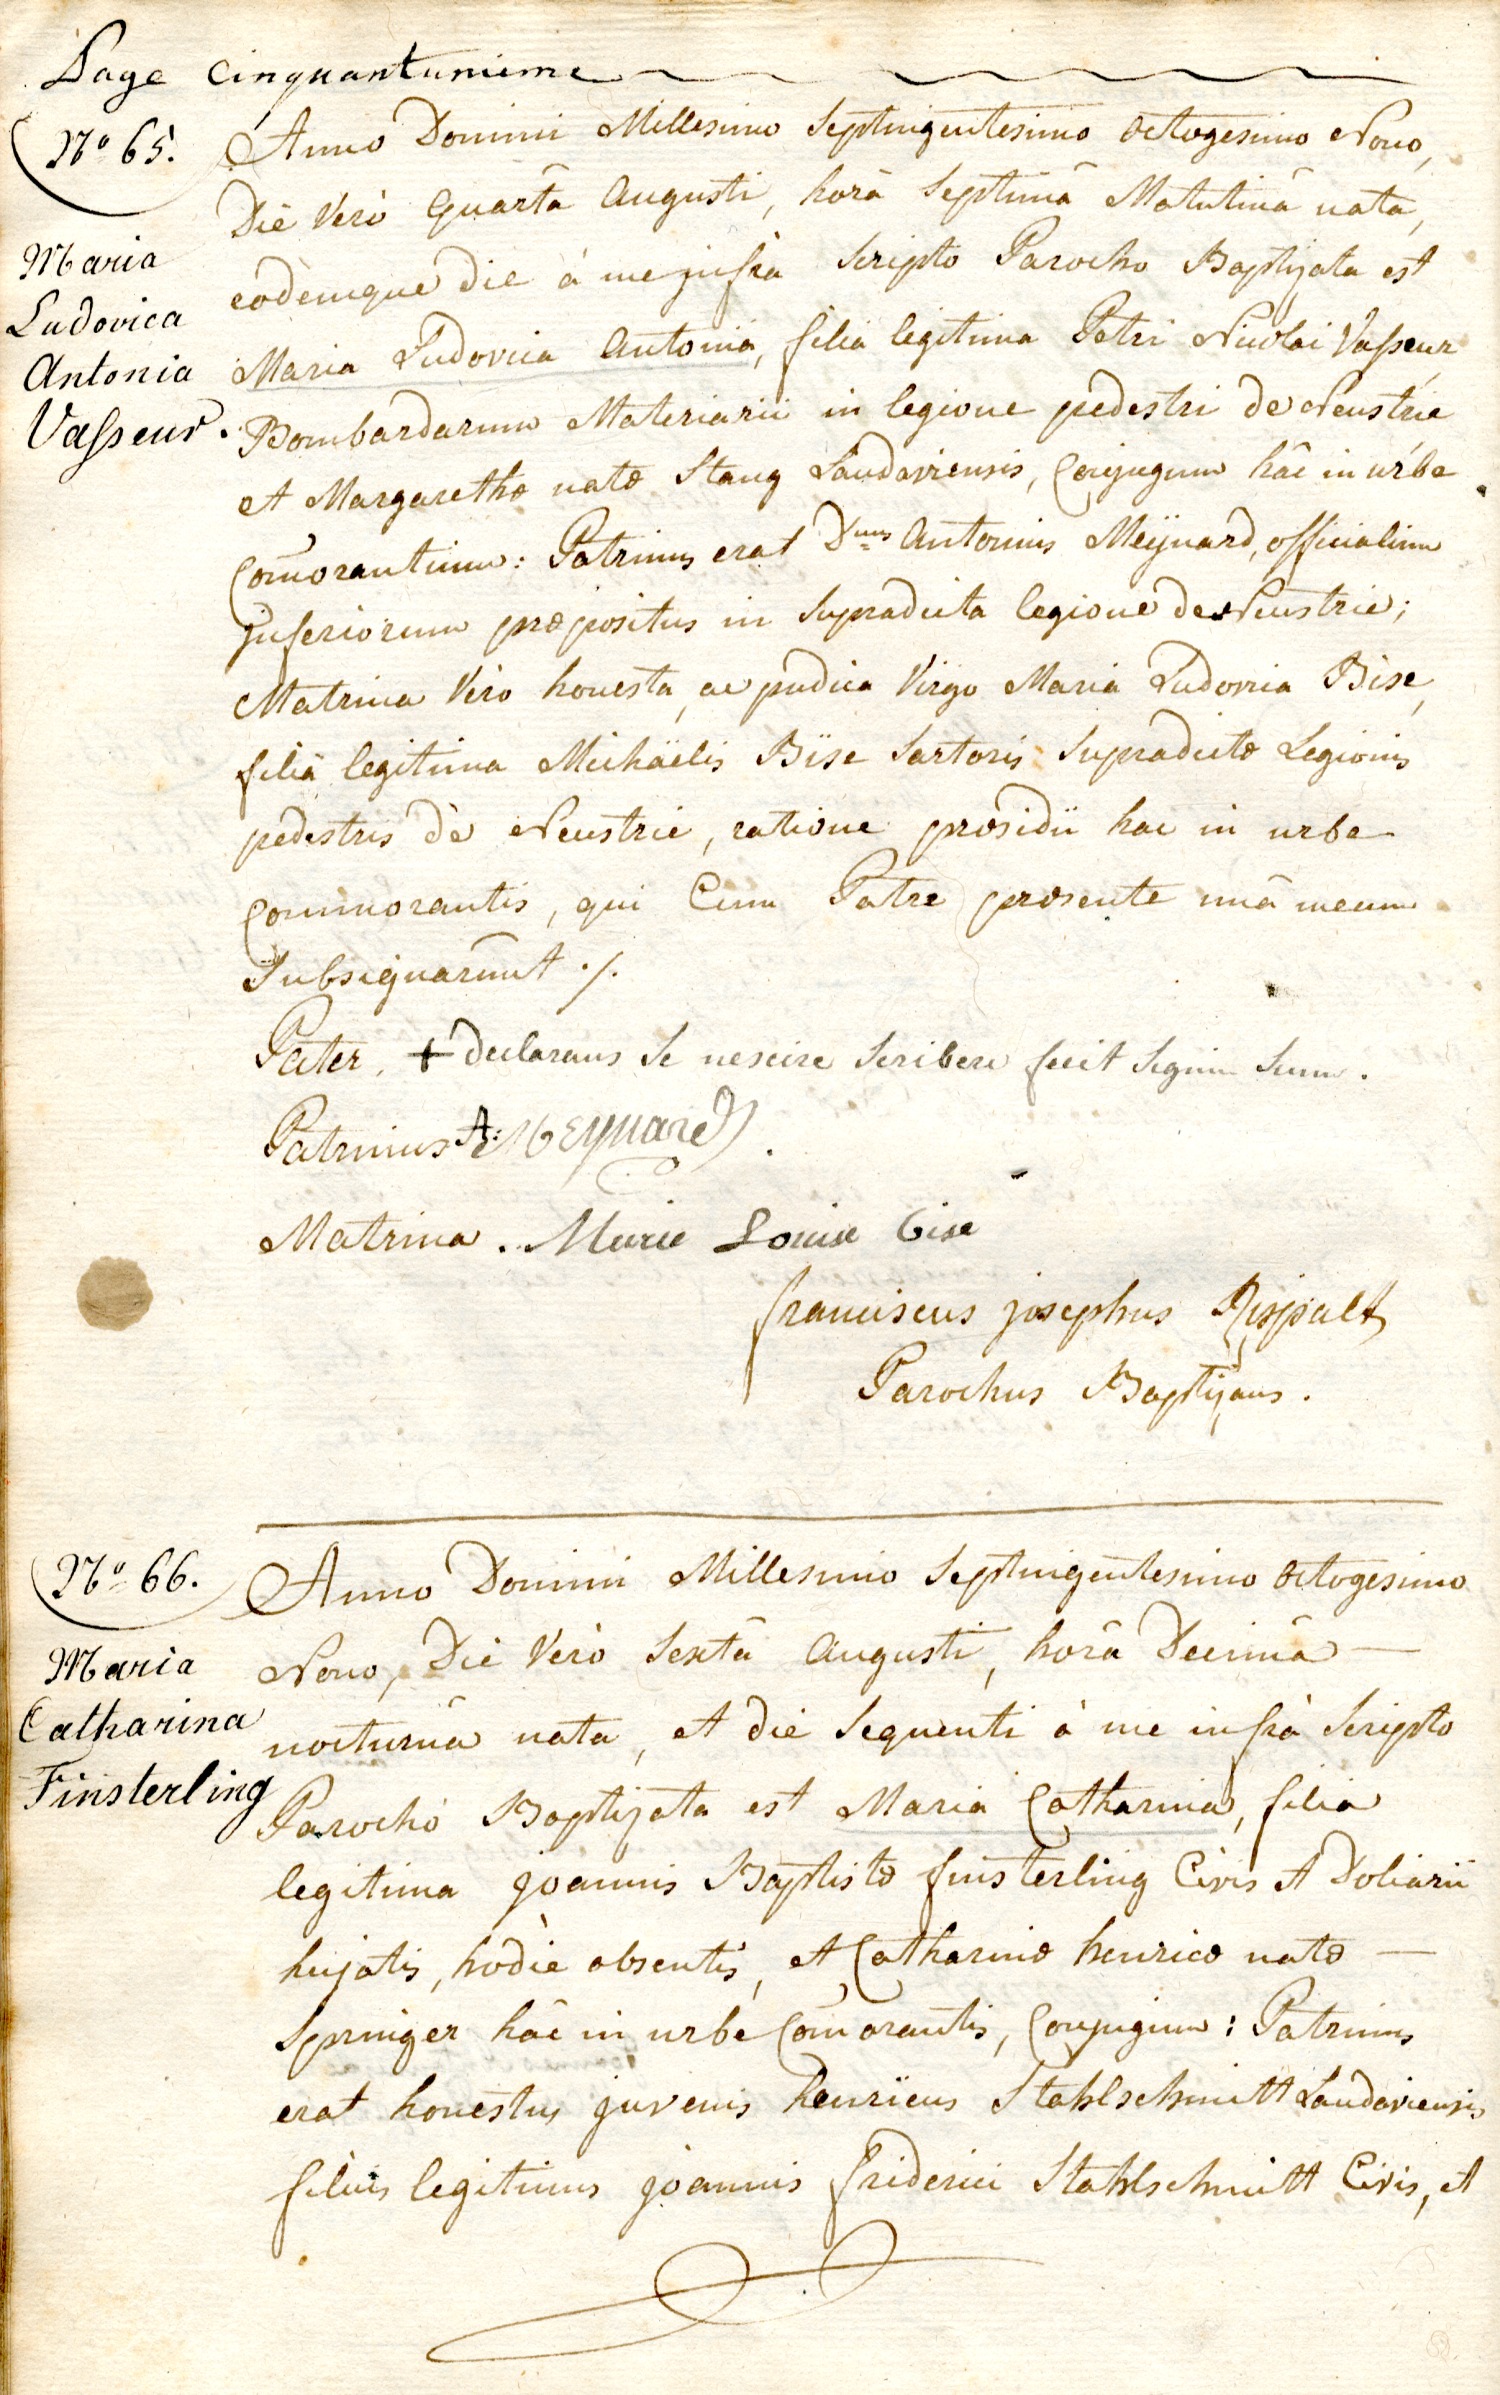 Page cinquantunieme
Nº 65.
Maria
Ludovica
Antonia
Vasseur.
Anno Domini Millesimo Septingentesimo octogesimo Nono,
Die Verò Quartâ Augusti, horâ Septimâ Matutinâ nata,
eodemque die à me infrà Scripto Parocho Baptizata est
Maria Ludovica Antonia, filia legitima Petri Nicolai Vasseur
Bombardarum Materiarii in legione pedestri de Neustrie
et Margarethæ natæ Stang Landaviensis, Conjugum hâc in urbe
Com̃orantium: Patrinus erat Dnus Antonius Meÿnard, officialium
inferiorum præpositus in Supradicta legione de Neustrie;
Matrina Verò honesta, ac pudica Virgo Maria Ludovica Bise,
filia legitima Michäelis Bïse Sartoris Supradictæ Legionis
pedestris de Neustrie, ratione præsidii hac in urbe
Commorantis, qui Cum Patre præsente unâ mecum
Subsignarûnt ./.
Pater. + declarans Se nescire Scribere fecit Signum Suum.
Patrinus A: Meynard.
Matrina. Marie Louise bise
franciscus josephus Rispalt
Parochus Baptizans.
Nº 66.
Maria
Catharina
Finsterling
Anno Domini Millesimo Septingentesimo octogesimo
Nono, Die Verò Sextâ Augusti, horâ Decimâ
nocturnâ nata, et die Sequenti à me infrà Scripto
Parocho Baptizata est Maria Catharina, filia
legitima joannis Baptistæ finsterling Civis et Doliarii
hujatis, hodie absentis, et Catharinæ henricæ natæ
Springer hâc in urbe Com̃orantis, Conjugum: Patrinus
erat honestus juvenis henricus Stahlschmitt Landaviensis
filius legitimus joannis friderici Stahlschmitt Civis, et